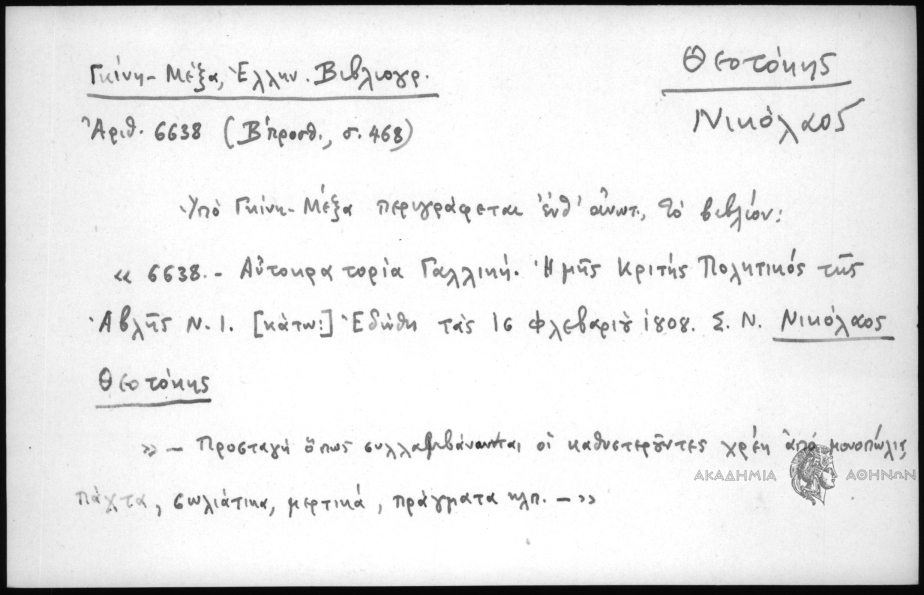 Θεοτόκης
Νικόλαος
Γκίνη-Μέξα, Ἑλλην. Βιβλιογρ.
Ἀριθ. 6638 (Β' προσθ., σ. 468)
Ὑπὸ Γκίνη-Μέξα περιγράφεται ἐνθ' ἀνωτ., τὸ βιβλίον:
« 6638. - Αὐτοκρατορία Γαλλική. Ἡμῆς Κριτής Πολητικός τῆς
Ἀβλῆς Ν. Ι. [κάτω:] Ἐδώθη τὰς 16 Φλεβαρίȣ 1808. Σ. Ν. Νικόλαος
Θεοτόκης
» - Προσταγὴ ὅπως συλλαμβάνωνται οἱ καθυστερȣ͂ντες χρέη ἀπὸ μονοπώλις
πάχτα, σωλιάτικα, μερτικά, πράγματα κλπ. - »
ΑΚΑΔΗΜΙΑ ΑΘΗΝΩΝ